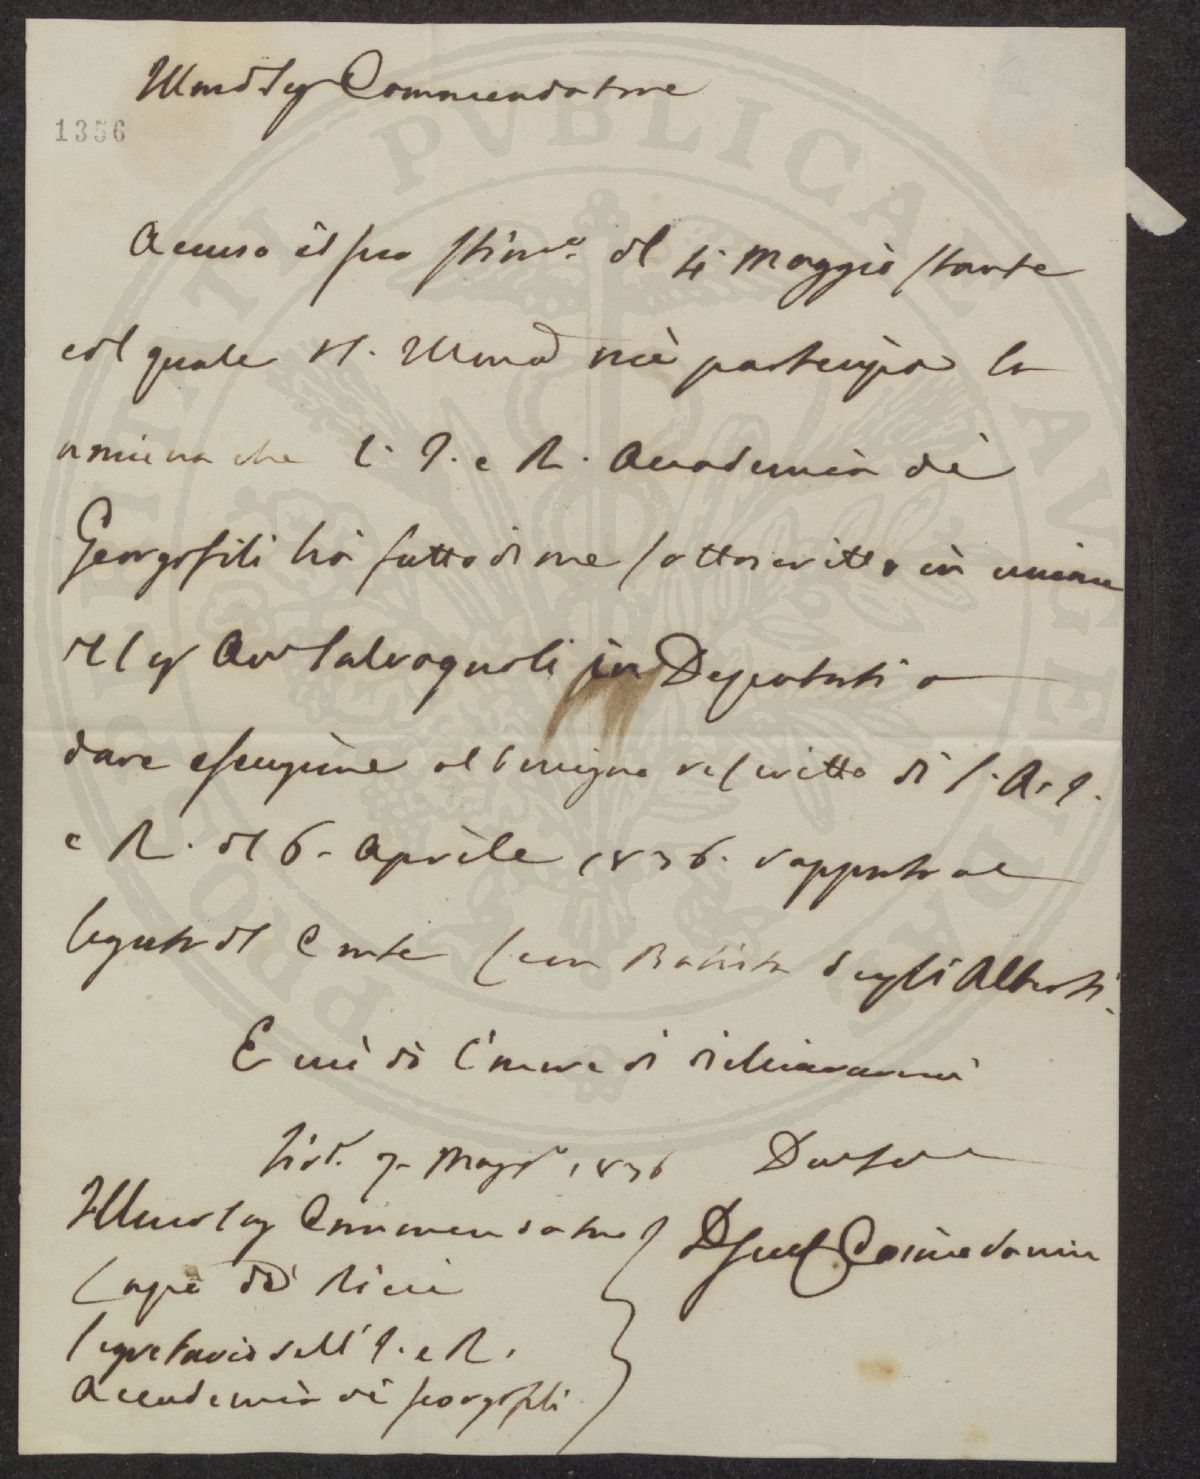 Illmo Sig Commendatore
1356
Accuso il suo stimo. del 4 Maggio stante
col quale VS. Illma mi partecipa la
nomina che l' I. e R. Accademia dei
Georgofili hà fatto di me sottoscritto in unione
del Sig Avv Salvagnoli in Deputati a
dare esecuzione al benigno rescritto di S. A. I.
e R. del 6. Aprile 1836. rapporto al
legato del Conte Leon Batista degli Alberti.
E mi do l'onore di dichiararmi
1836
Illmo Sig Commendatore
Lapo de' Ricci
Segretario dell' I. e R.
Accademia de Georgofili
PVBLICAE